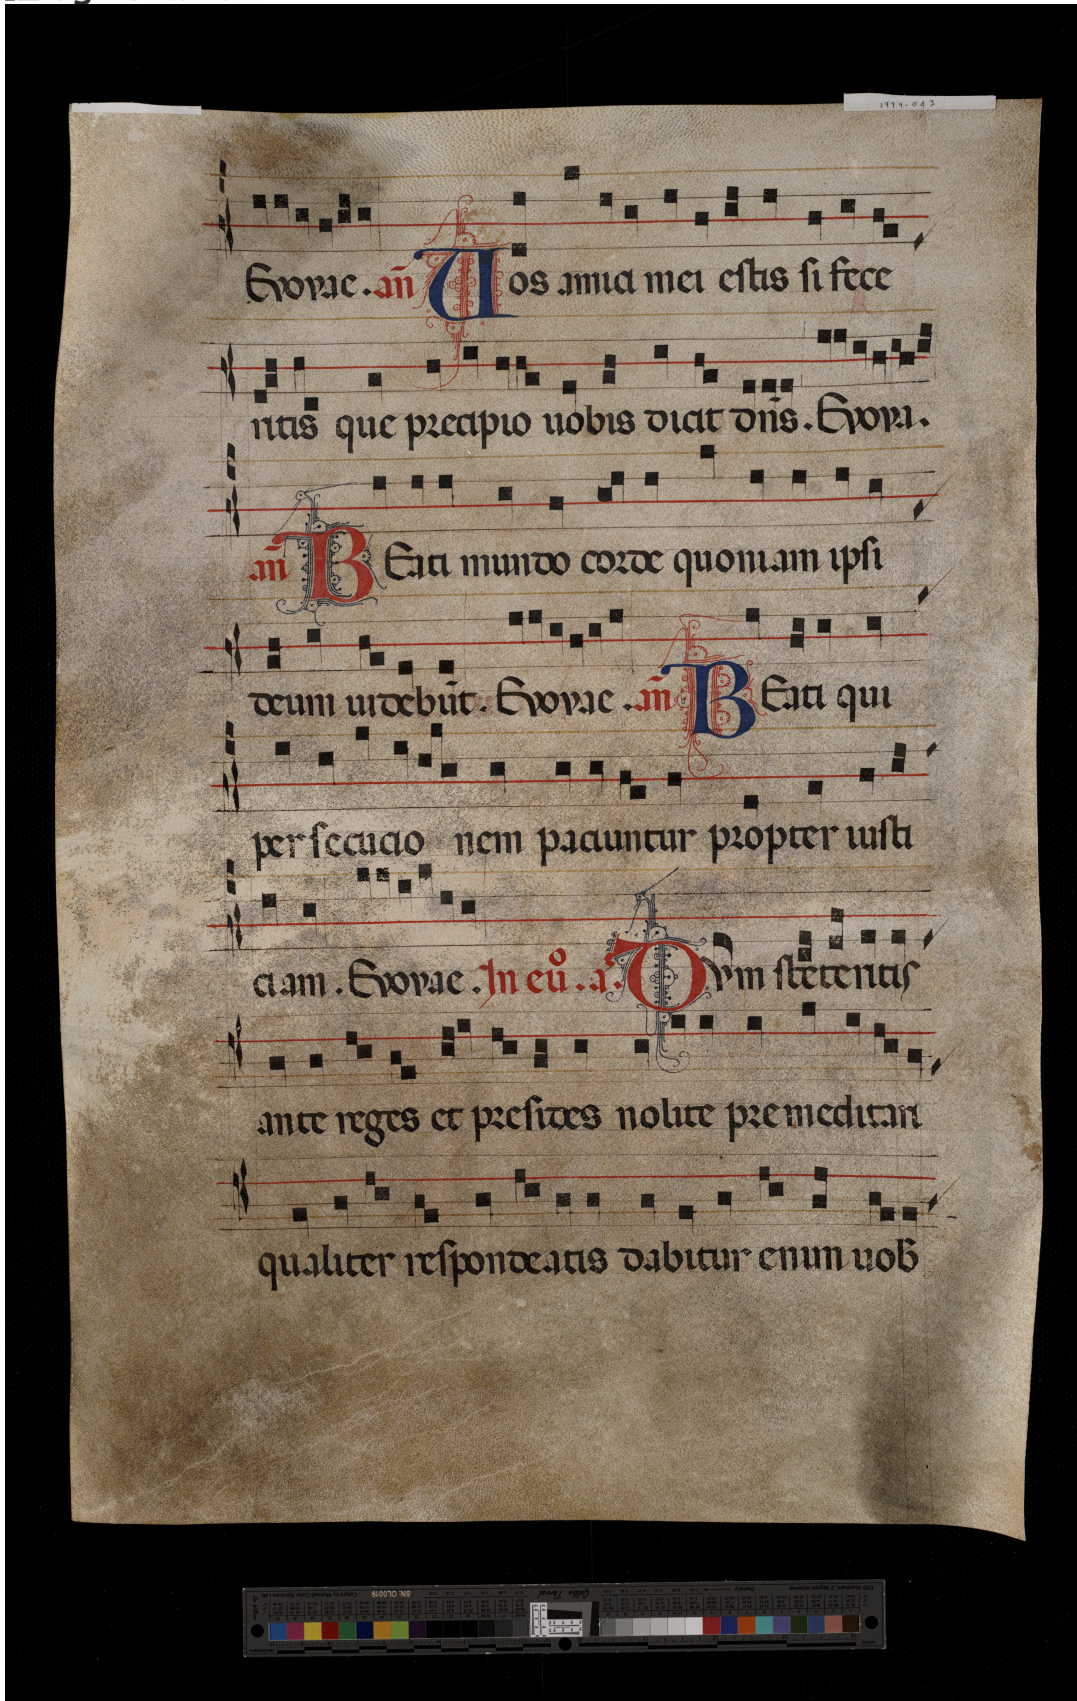 1994-043
Evovae . añ Uos amici mei estis si fece
ritis que precipio uobis dicit dñs . Evova .
añ BEati mundo corde quoniam ipsi
deum uidebūt . Evovae . añ BEati qui
persecucio nem paciuntur propter iusti
ciam . Evovae . In euo . a . Dvm steteritis
ante reges et presides nolite premeditari
qualiter respondeatis dabitur enim uob